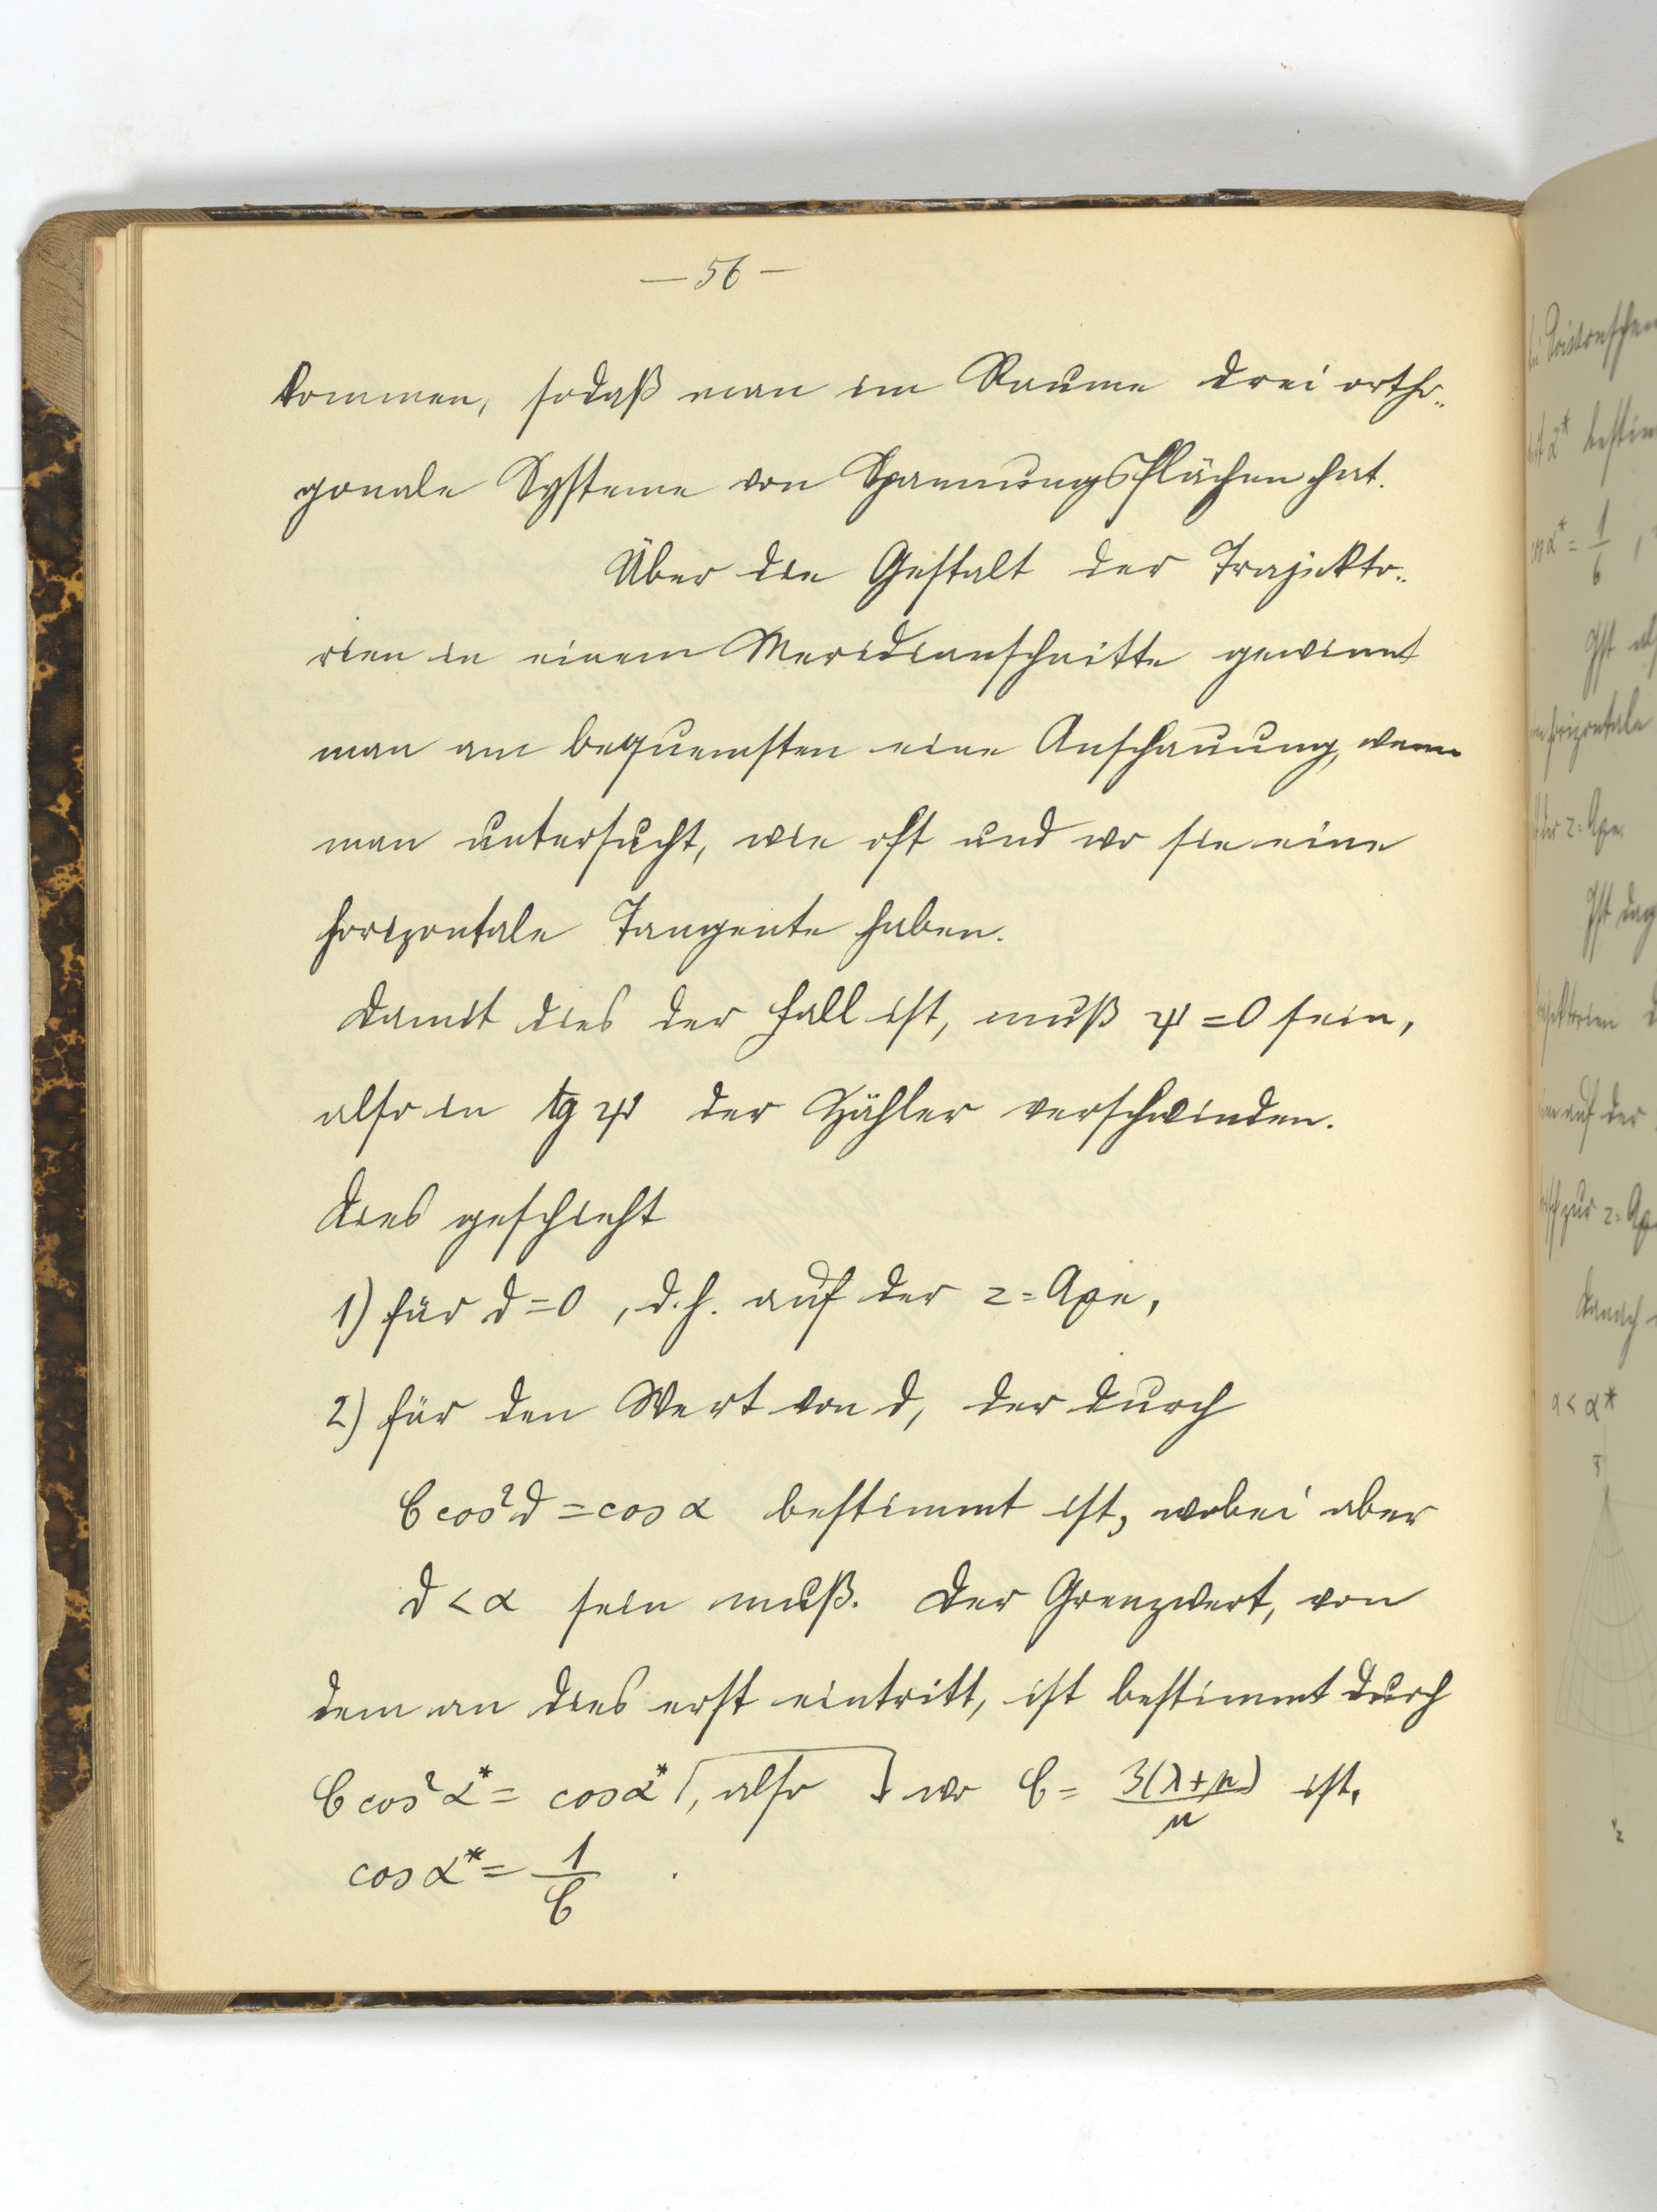 — 56 —
kommen, sodaß man im Raume drei ortho=
gonale Systeme von Spannungsflächen hat.
Über die Gestalt der Trajekto=
rien in einem Meridianschnitte gewinnt
man am bequemsten eine Anschauung, wenn
man untersucht, wie oft und wo sie eine
horizontale Tangente haben.
Damit dies der Fall ist, muß ψ = 0 sein,
also in tg ψ der Zähler verschwinden.
Dies geschieht
1) für ϑ = 0, d.h. auf der z=Axe,
2) für den Wert von ϑ, der durch
C cos²ϑ = cos α bestimmt ist, wobei aber
ϑ < α sein muß. Der Grenzwert, von
dem an dies erst eintritt, ist bestimmt durch
C cos²α* = cos α* [, also ] wo C = 3(λ+μ)/μ ist,
cos α* = 1/C .
α* bestim
cos α* = 1/6 ,
Ist
horizontale
der z=Axe
Ist
auf der
zur z=Axe
Danach
α < α*